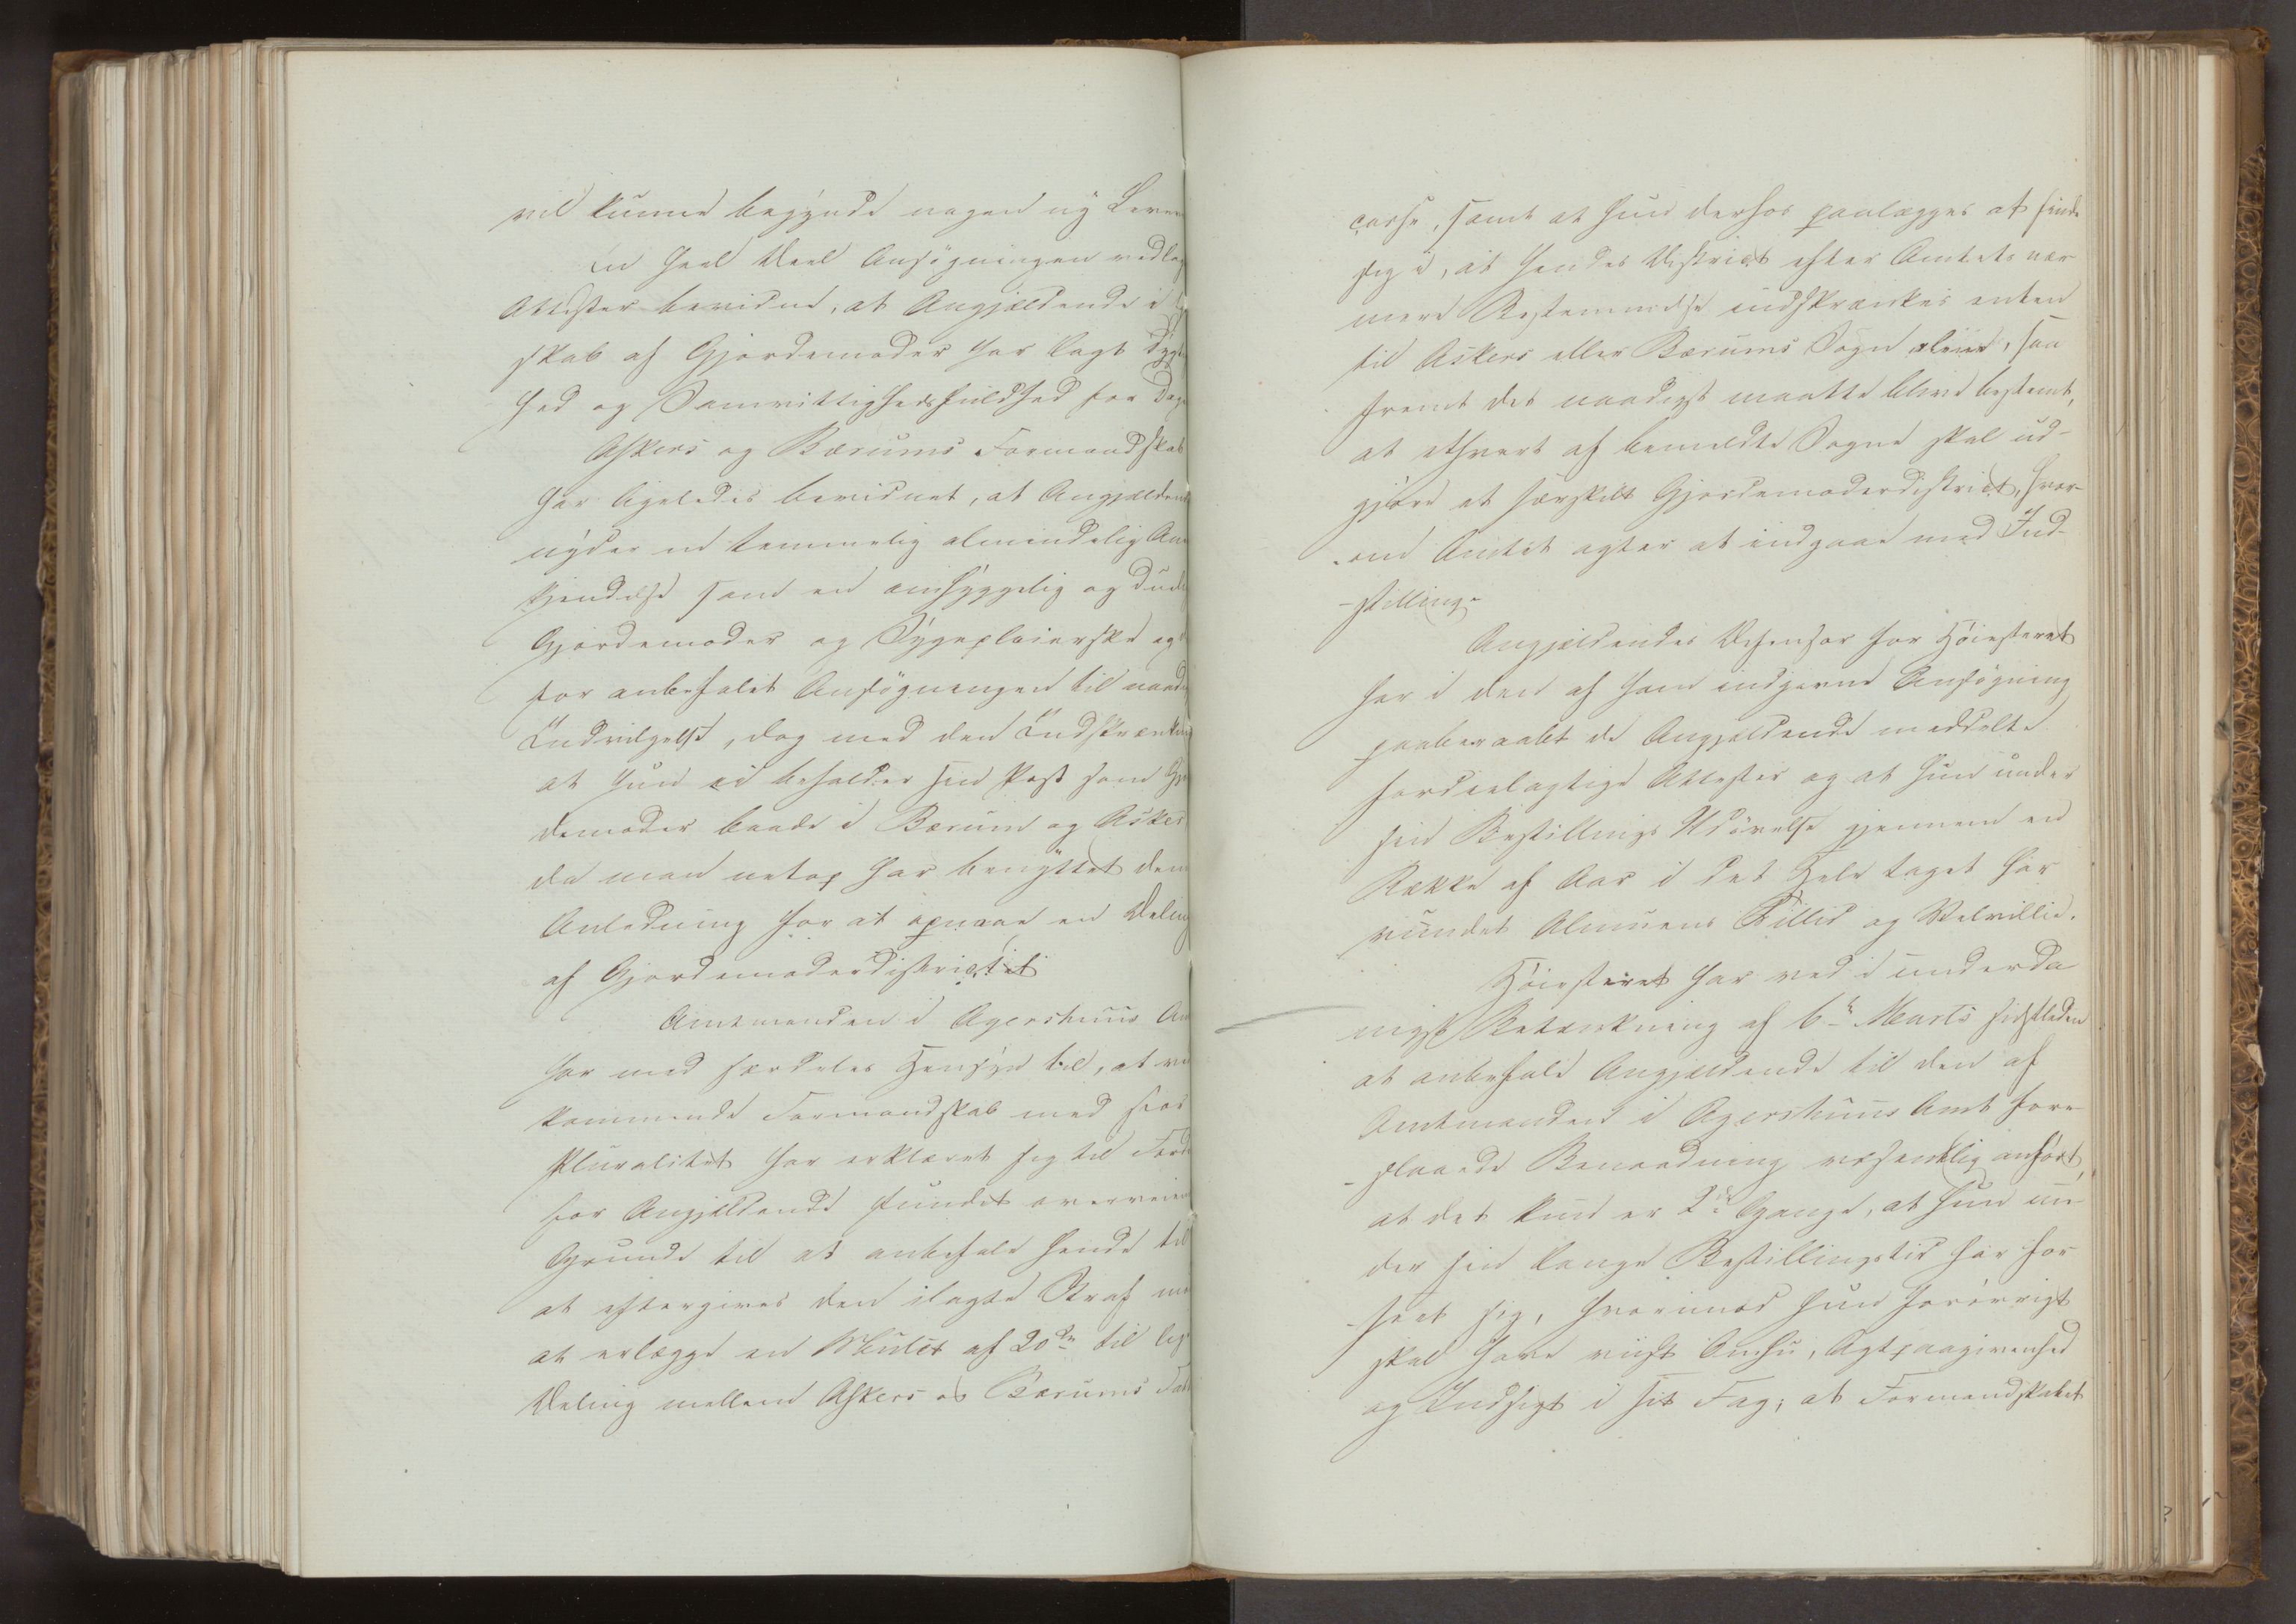 vil kunne begynde nogen ny Leve
En heel Deel Ansøgningen vedlag
Attester bevidne, at Angjældende i
skab af Gjordemoder har lagt Dyg
hed og Samvittighedsfuldhed for Dag
Askers og Bærums Formandskab
har ligeledes bevidnet, at Angjældend
nyder en temmelig almindelig An
kjendelse som en omhyggelig og due
Gjordemoder og Sygepleierske og
for anbefalet Ansøgningen til naad
Indvilgelse, dog med den Indskrænk
at hun ei beholder sin Post som Gj
demoder baade i Bærum og Asker
da man netop har benyttet den
Anledning for at opnaae en Deling
af Gjordemoderdistrictet
Amtmanden i Agershuus Am
har med særdeles Hensyn til, at ved
kommende Formandskab med stor
Pluralitet har erklæret sig til Forde
for Angjældende fundet overveien
Grunde til at anbefale hende til
at eftergives den ilagte Straf mod
at erlægge en Mulct af 20 til lig
Deling mellem Askers og Bærums Fat
casse, samt at hun derhos paalægges at finde
sig i, at hendes District efter Amtets nær
mere Bestemmelse indskrænkes enten
til Askers eller Bærums Sogn alene, saa
fremt det naadigst maatte blive bestemt,
at ethvert af bemeldte Sogne skal ud-
gjøre et særskilt Gjordemoderdistrict, hvor-
om Amtet agter at indgaae med Ind-
-stilling.
Angjældendes Defensor for Høiesteret
har i den af ham indgivne Ansøgning
paaberaabt de Angjældende meddelte
fordeelagtige Attester og at hun under
sin Bestillings Udøvelse gjennem en
Række af Aar i det Hele taget har
vundet Almuens Tillid og Velvillie.
Høiesteret har ved i underda
nigst Betænkning af 6te Marts sidstleden
at anbefale Angjældende til den af
Amtmanden i Agershuus Amt fore-
-slaaede Benaadning væsentlig anført,
at det kun er 2den Gang, at hun un-
der sin lange Bestillingstid har for
-seet sig, hvorimod hun forøvrigt
skal have viist Omhu, Agtpaagivenhed
og Indsigt i sit Fag; at Formandskabet